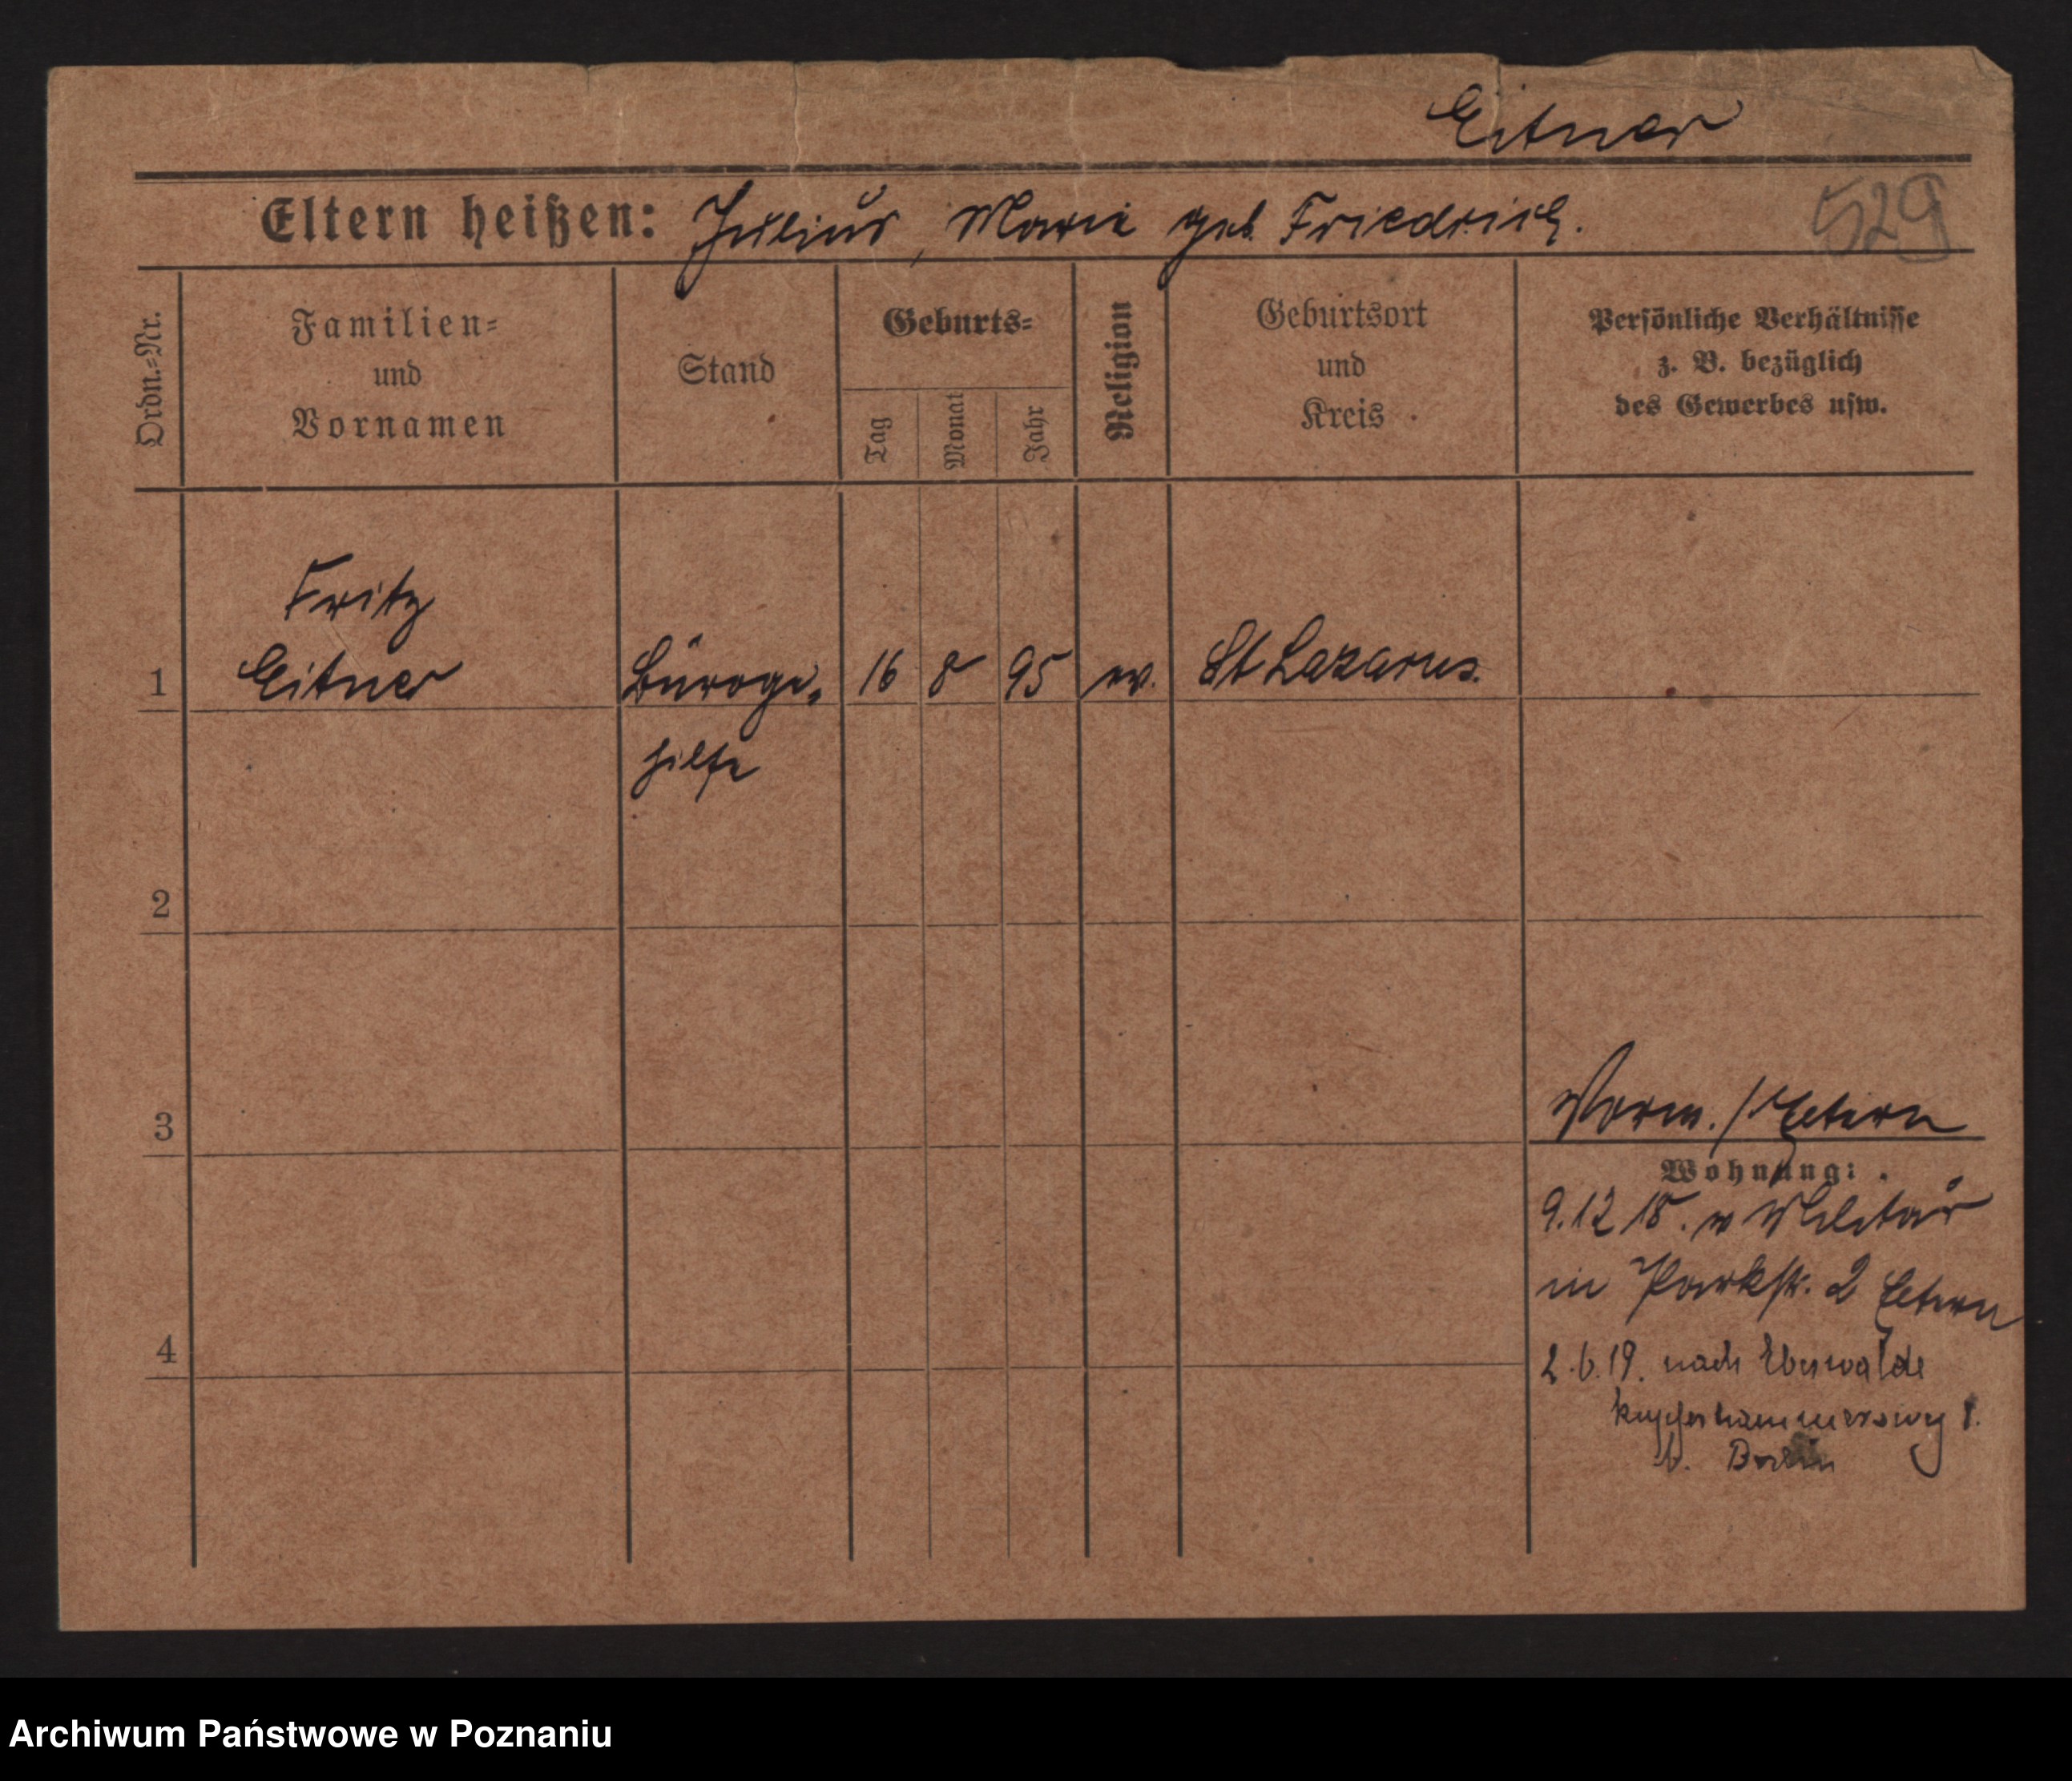 Eitner
Eltern heißen: Julius, Marie geb. Friedrich.
529
Ordn.=Nr.
Familien=
und
Vornamen
Stand
Geburts=
Tag
Monat
Jahr
Religion
Geburtsort
und
Kreis
Persönliche Verhältnisse
z. B. bezüglich
des Gewerbes usw.
Fritz
1 Eitner Büroge- 16 8 95 ev. St Lazarus.
hilfe
2
3
Vorm. / Eltern
Wohnung:
9.12 18. v Militär
in Parkstr. 2 Eltern
4
2.6.19. nach Eberswalde
Kupferhammersweg 1.
b. Berlin
Archiwum Państwowe w Poznaniu